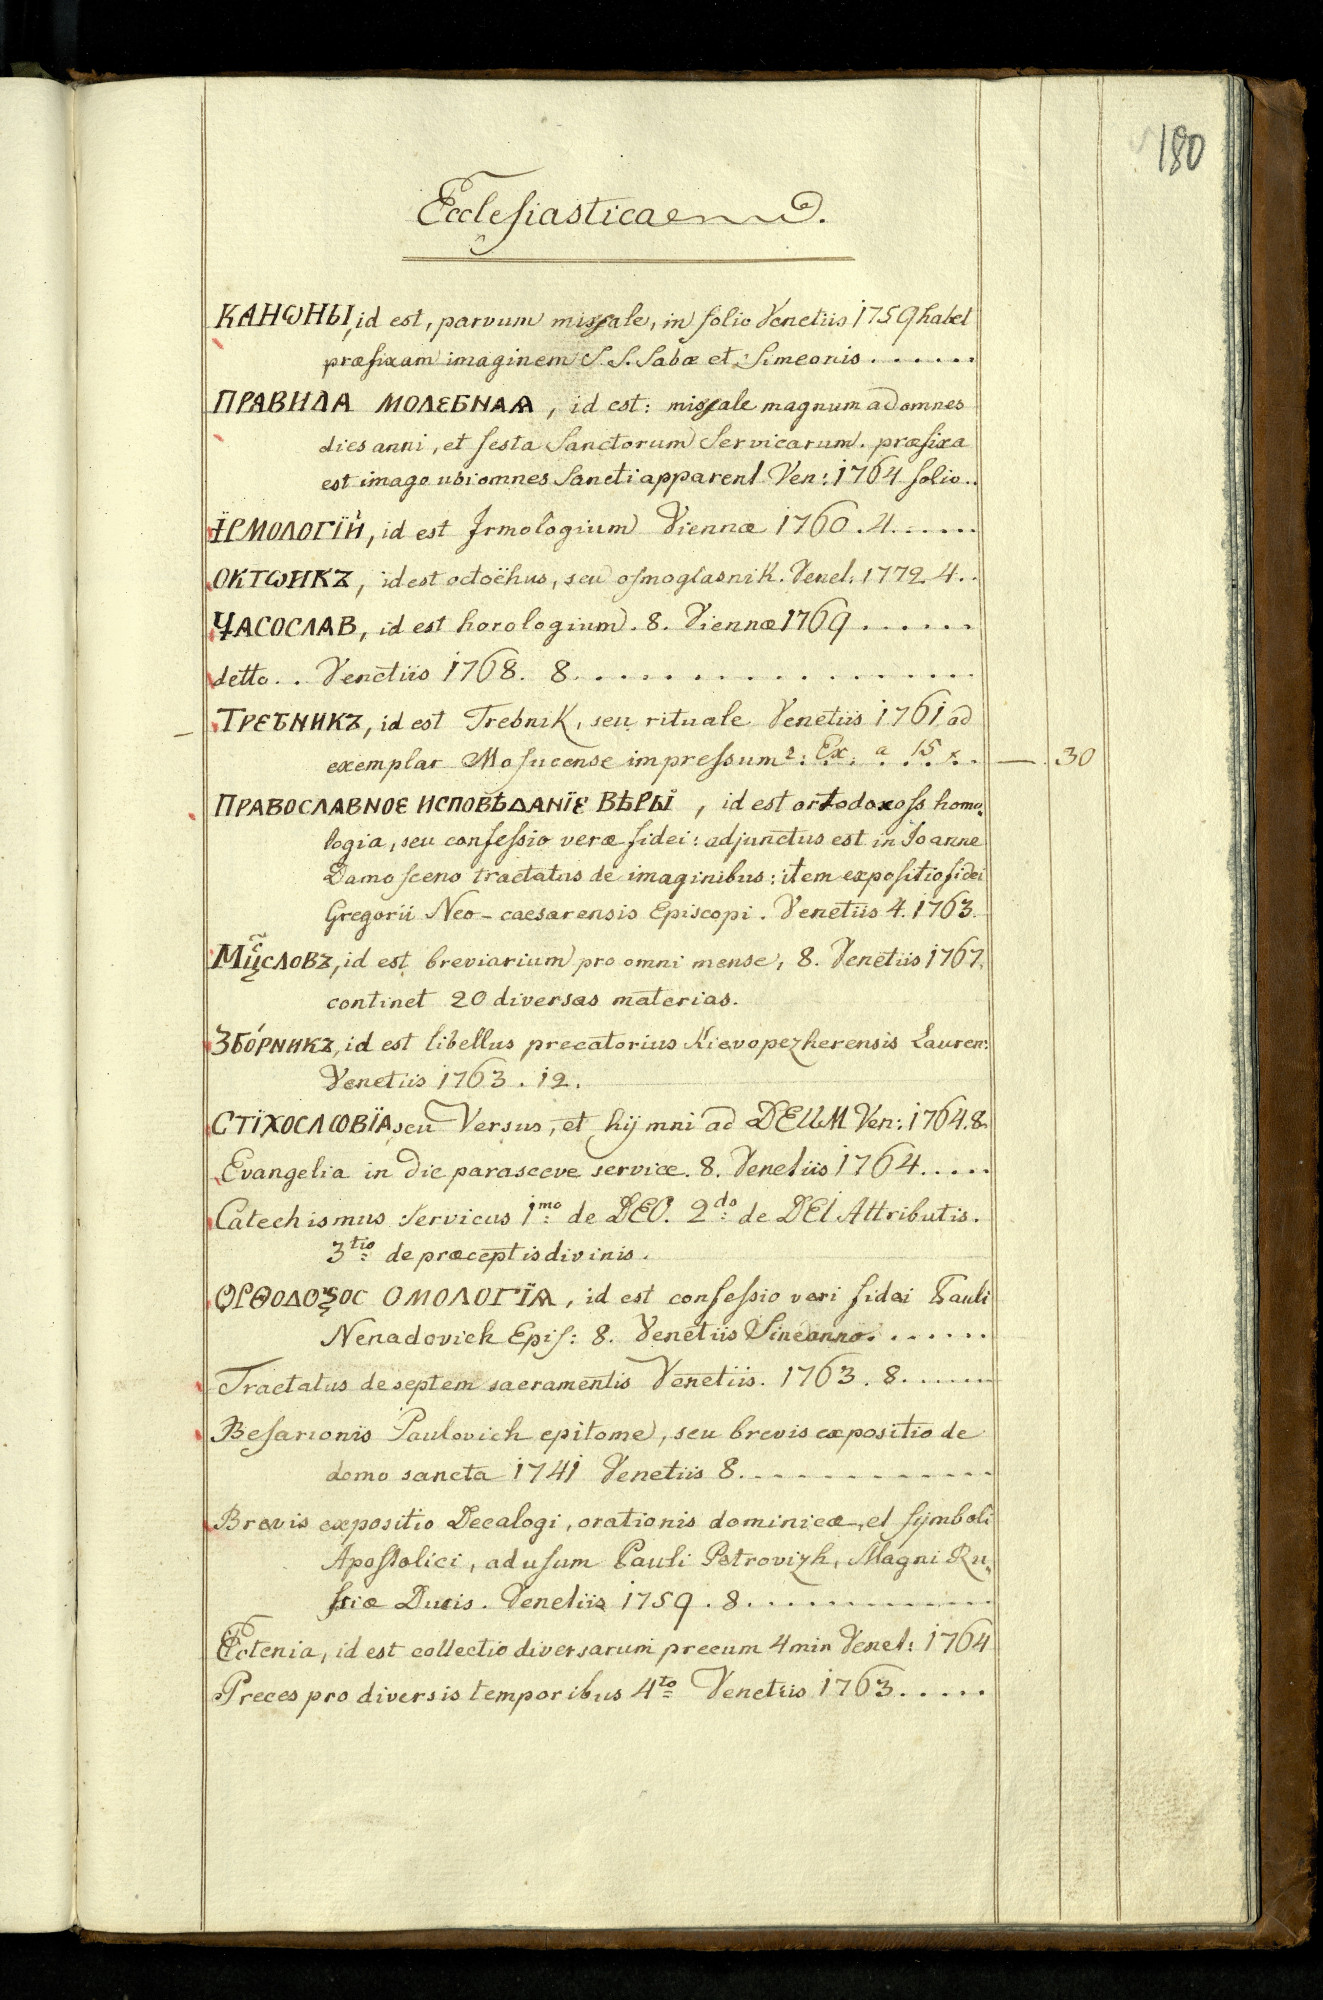 180
Ecclesiastica.
КАНѠНЫ, id est, parvum missale, in folio Venetiis 1759 habet
præfixam imaginem S. S. Sabæ et Simeonis . . . . . .
ПРАВИЛА МОЛЕБНАѦ, id est: missale magnum ad omnes
dies anni, et festa Sanctorum Servicarum. præfixa
est imago ubi omnes Sancti apparent Ven: 1764 folio..
ЇРМОЛОГЇЙ, id est Irmologium Viennæ 1760. 4. . . . . .
ОКТѠИКЪ, id est octoëhus, seu osmoglasnik. Venet: 1772. 4. .
ЧАСОСЛАВ, id est horologium. 8. Viennæ 1769 . . . . . .
detto. . Venetiis 1768. 8. . . . . . . . . . . . . .
ТРЕБНИКЪ, id est Trebnik, seu rituale Venetiis 1761 ad
exemplar Moscuense impressum 2: Ex. a 15 x. — . 30
ПРАВОСЛАВНОЕ ИСПОВѢДАНЇЕ ВѢРЫ, id est ortodoxoss homo-
logia, seu confessio veræ fidei: adjunctus est in Joanne
Damasceno tractatus de imaginibus: item expositio fidei
Gregorii Neo-caesarensis Episcopi. Venetiis 4. 1763.
Мцⷭ҇ловъ, id est breviarium pro omni mense, 8. Venetiis 1767.
continet 20 diversas materias.
ЗБО́РНИКЪ, id est libellus precatorius Kievopezherensis Lauren:
Venetiis 1763. 12.
СТЇХОСЛѠВЇА, seu Versus, et hijmni ad DEUM Ven: 1764. 8.
Evangelia in die parasceve service. 8. Venetiis 1764. . . . .
Catechismus Servicus 1mo: de DEO. 2do: de DEI Attributis.
3tio: de præceptis divinis.
ОРѲОДОѮОС ОМОЛОГЇѦ, id est confessio veri fidei Pauli
Nenadovich Epis: 8. Venetiis Sine anno. . . . . . .
Tractatus de septem sacramentis Venetiis. 1763. 8. . . . . .
Besarionis Paulovich epitome, seu brevis expositio de
domo sancta 1741 Venetiis 8. . . . . . . . . . .
Brevis expositio Decalogi, orationis dominicæ, et sijmboli
Apostolici, ad usum Pauli Petrovizh, Magni Ru-
ssiæ Ducis. Venetiis 1759. 8. . . . . . . . . . .
Ectenia, id est collectio diversarum precum 4 min Venet: 1764
Preces pro diversis temporibus 4to Venetiis 1763. . . . .